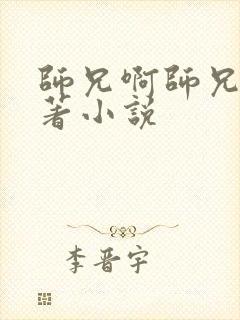 師兄啊師兄
著小說
李晋宇